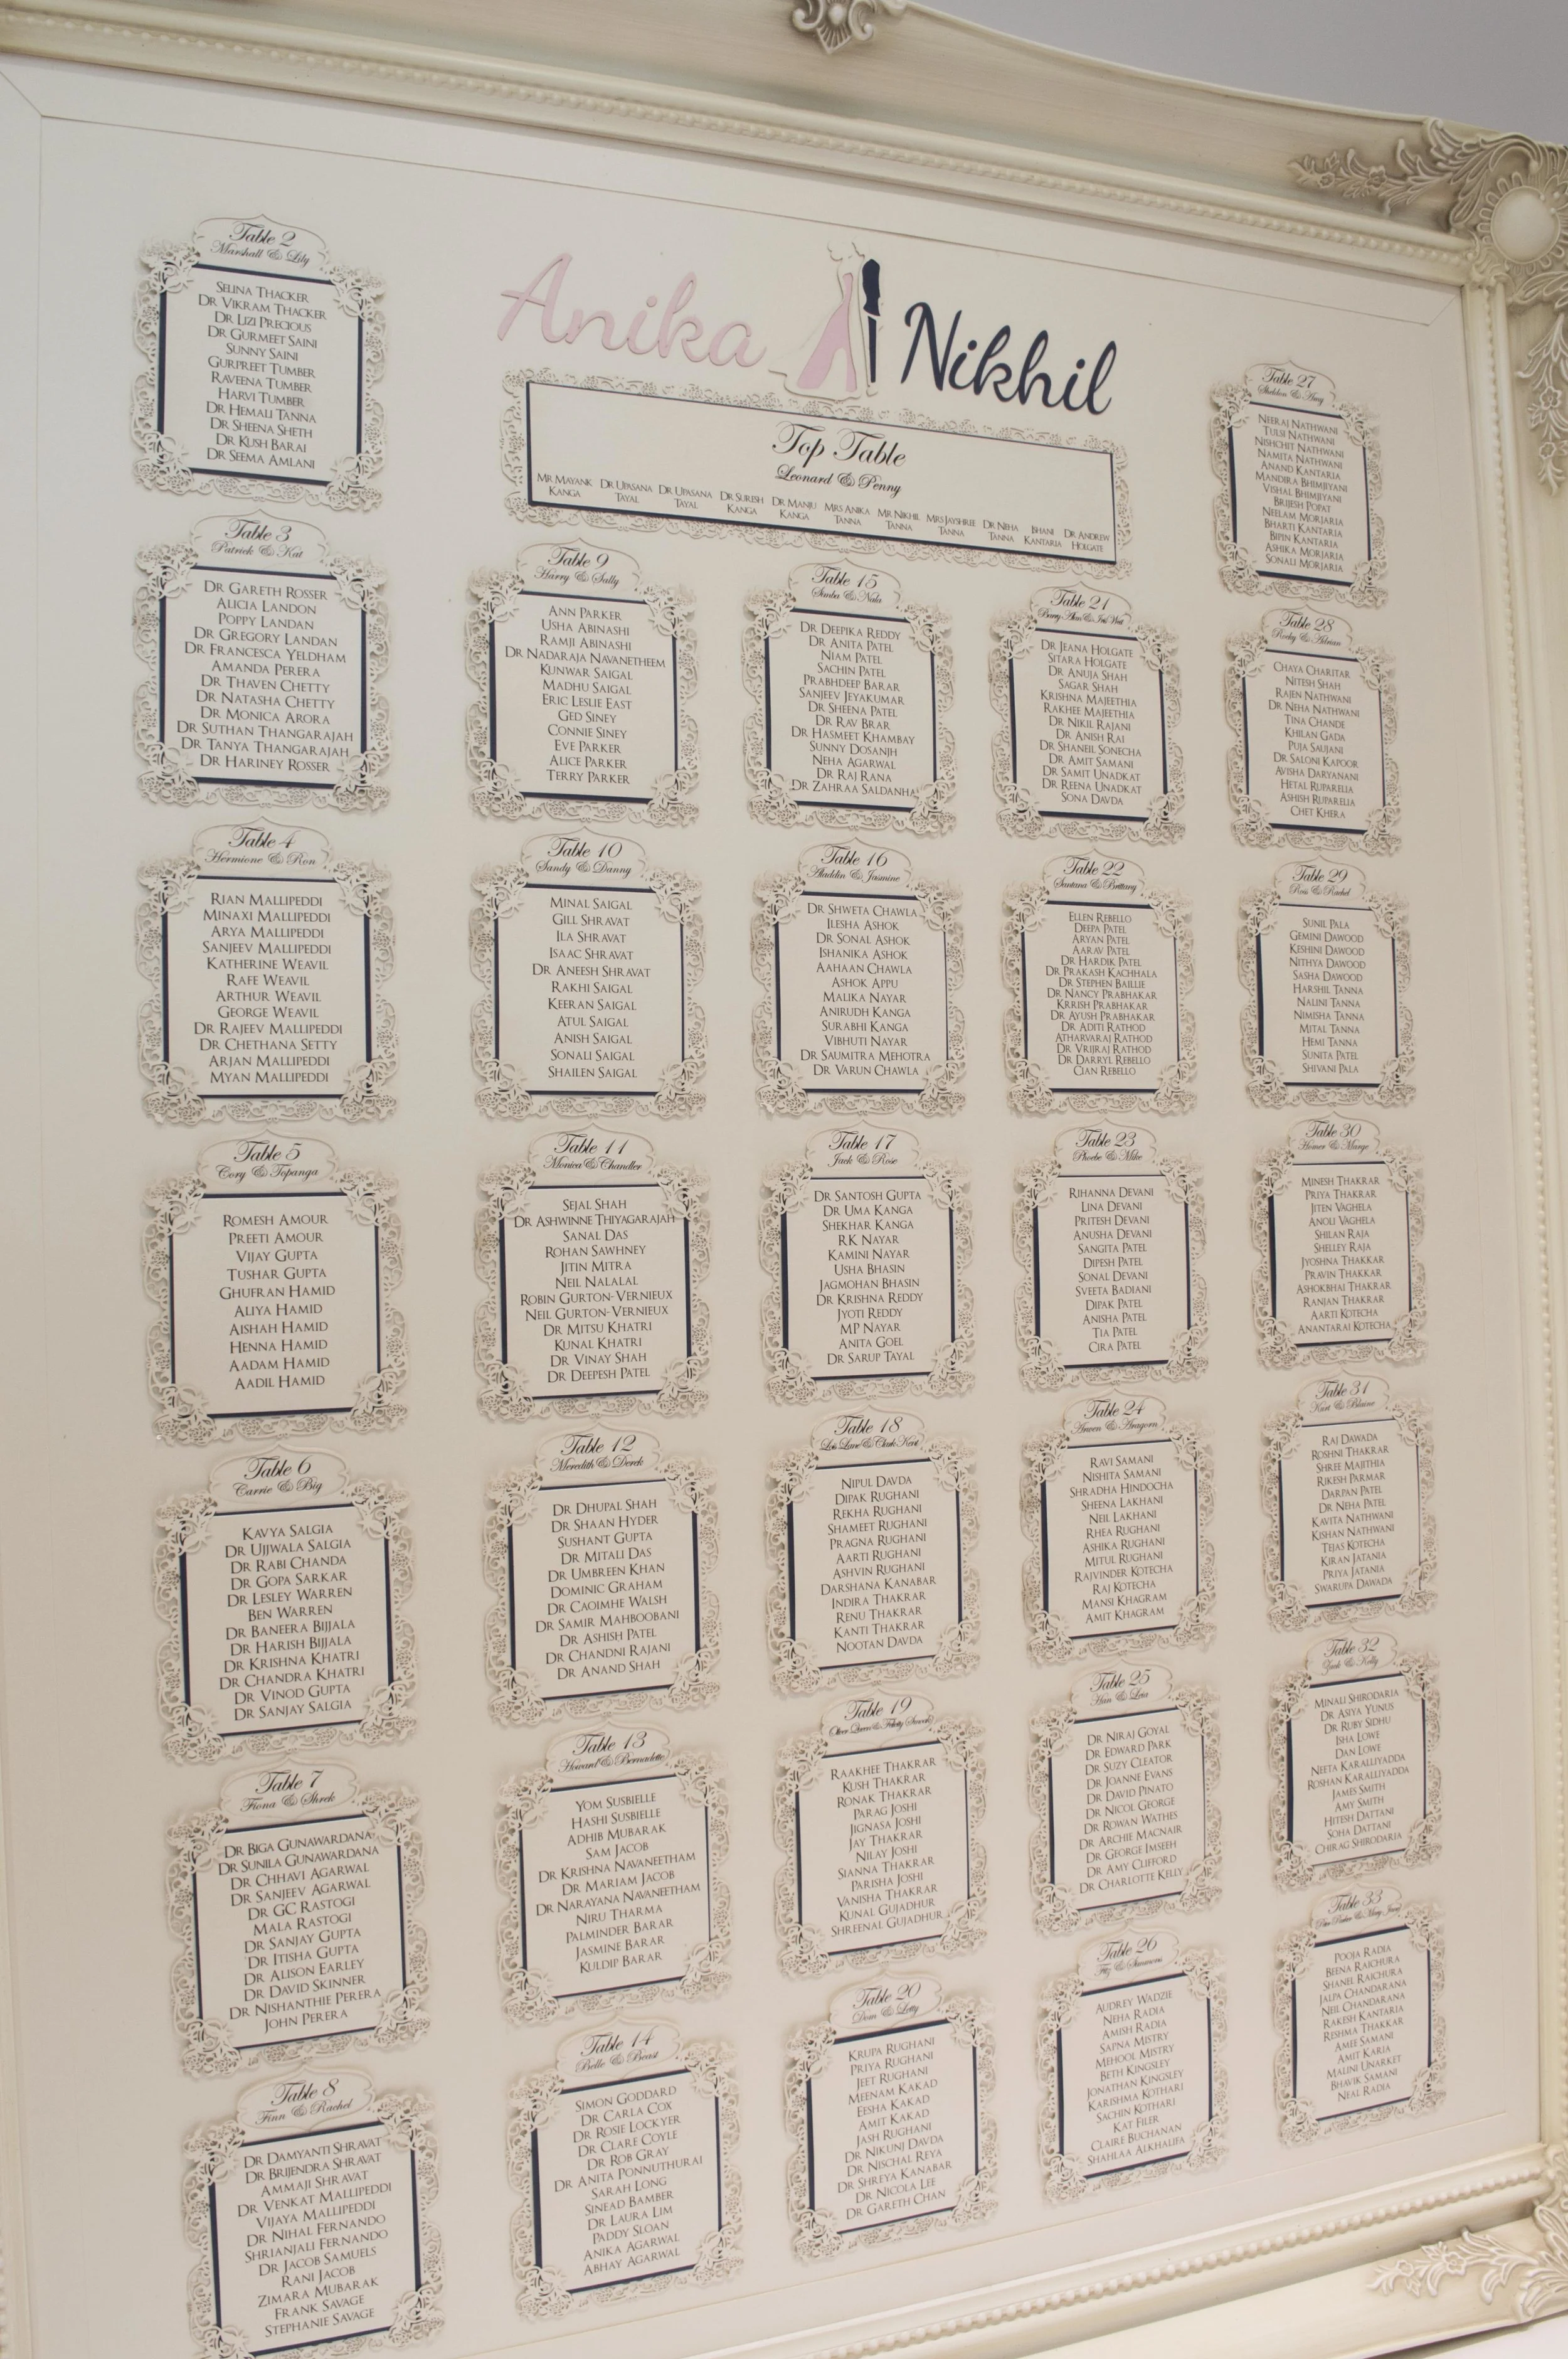 Anika Nikhil
Top Table
Leonard & Penny
MR MAYANK KANGA
DR UPASANA TAYAL
DR UPASANA TAYAL
DR SURESH KANGA
DR MANJU KANGA
MRS ANIKA TANNA
MR NIKHIL TANNA
MRS JAYSHREE TANNA
DR NEHA TANNA
BHANI KANTARIA
DR ANDREW HOLGATE
Table 2
Marshall & Lily
SELINA THACKER
DR VIKRAM THACKER
DR LIZI PRECIOUS
DR GURMEET SAINI
SUNNY SAINI
GURPREET TUMBER
RAVEENA TUMBER
HARVI TUMBER
DR HEMALI TANNA
DR SHEENA SHETH
DR KUSH BARAI
DR SEEMA AMLANI
Table 3
Patrick & Kat
DR GARETH ROSSER
ALICIA LANDON
POPPY LANDAN
DR GREGORY LANDAN
DR FRANCESCA YELDHAM
AMANDA PERERA
DR THAVEN CHETTY
DR NATASHA CHETTY
DR MONICA ARORA
DR SUTHAN THANGARAJAH
DR TANYA THANGARAJAH
DR HARINEY ROSSER
Table 4
Hermione & Ron
RIAN MALLIPEDDI
MINAXI MALLIPEDDI
ARYA MALLIPEDDI
SANJEEV MALLIPEDDI
KATHERINE WEAVIL
RAFE WEAVIL
ARTHUR WEAVIL
GEORGE WEAVIL
DR RAJEEV MALLIPEDDI
DR CHETHANA SETTY
ARJAN MALLIPEDDI
MYAN MALLIPEDDI
Table 5
Cory & Topanga
ROMESH AMOUR
PREETI AMOUR
VIJAY GUPTA
TUSHAR GUPTA
GHUFRAN HAMID
ALIYA HAMID
AISHAH HAMID
HENNA HAMID
AADAM HAMID
AADIL HAMID
Table 6
Carrie & Big
KAVYA SALGIA
DR UJJWALA SALGIA
DR RABI CHANDA
DR GOPA SARKAR
DR LESLEY WARREN
BEN WARREN
DR BANEERA BIJJALA
DR HARISH BIJJALA
DR KRISHNA KHATRI
DR CHANDRA KHATRI
DR VINOD GUPTA
DR SANJAY SALGIA
Table 7
Fiona & Shrek
DR BIGA GUNAWARDANA
DR SUNILA GUNAWARDANA
DR CHHAVI AGARWAL
DR SANJEEV AGARWAL
DR GC RASTOGI
MALA RASTOGI
DR SANJAY GUPTA
DR ITISHA GUPTA
DR ALISON EARLEY
DR DAVID SKINNER
DR NISHANTHIE PERERA
JOHN PERERA
Table 8
Finn & Rachel
DR DAMYANTI SHRAVAT
DR BRIJENDRA SHRAVAT
AMMAJI SHRAVAT
DR VENKAT MALLIPEDDI
VIJAYA MALLIPEDDI
DR NIHAL FERNANDO
SHRIANJALI FERNANDO
DR JACOB SAMUELS
RANI JACOB
ZIMARA MUBARAK
FRANK SAVAGE
STEPHANIE SAVAGE
Table 9
Harry & Sally
ANN PARKER
USHA ABINASHI
RAMJI ABINASHI
DR NADARAJA NAVANETHEEM
KUNWAR SAIGAL
MADHU SAIGAL
ERIC LESLIE EAST
GED SINEY
CONNIE SINEY
EVE PARKER
ALICE PARKER
TERRY PARKER
Table 10
Sandy & Danny
MINAL SAIGAL
GILL SHRAVAT
ILA SHRAVAT
ISAAC SHRAVAT
DR ANEESH SHRAVAT
RAKHI SAIGAL
KEERAN SAIGAL
ATUL SAIGAL
ANISH SAIGAL
SONALI SAIGAL
SHAILEN SAIGAL
Table 11
Monica & Chandler
SEJAL SHAH
DR ASHWINNE THIYAGARAJAH
SANAL DAS
ROHAN SAWHNEY
JITIN MITRA
NEIL NALALAL
ROBIN GURTON-VERNIEUX
NEIL GURTON-VERNIEUX
DR MITSU KHATRI
KUNAL KHATRI
DR VINAY SHAH
DR DEEPESH PATEL
Table 12
Meredith & Derek
DR DHUPAL SHAH
DR SHAAN HYDER
SUSHANT GUPTA
DR MITALI DAS
DR UMBREEN KHAN
DOMINIC GRAHAM
DR CAOIMHE WALSH
DR SAMIR MAHBOOBANI
DR ASHISH PATEL
DR CHANDNI RAJANI
DR ANAND SHAH
Table 13
Howard & Bernadette
YOM SUSBIELLE
HASHI SUSBIELLE
ADHIB MUBARAK
SAM JACOB
DR KRISHNA NAVANEETHAM
DR MARIAM JACOB
DR NARAYANA NAVANEETHAM
NIRU THARMA
PALMINDER BARAR
JASMINE BARAR
KULDIP BARAR
Table 14
Belle & Beast
SIMON GODDARD
DR CARLA COX
DR ROSIE LOCKYER
DR CLARE COYLE
DR ROB GRAY
DR ANITA PONNUTHURAI
SARAH LONG
SINEAD BAMBER
DR LAURA LIM
PADDY SLOAN
ANIKA AGARWAL
ABHAY AGARWAL
Table 15
Simba & Nala
DR DEEPIKA REDDY
DR ANITA PATEL
NIAM PATEL
SACHIN PATEL
PRABHDEEP BARAR
SANJEEV JEYAKUMAR
DR SHEENA PATEL
DR RAV BRAR
DR HASMEET KHAMBAY
SUNNY DOSANJH
NEHA AGARWAL
DR RAJ RANA
DR ZAHRAA SALDANHA
Table 16
Aladdin & Jasmine
DR SHWETA CHAWLA
ILESHA ASHOK
DR SONAL ASHOK
ISHANIKA ASHOK
AAHAAN CHAWLA
ASHOK APPU
MALIKA NAYAR
ANIRUDH KANGA
SURABHI KANGA
VIBHUTI NAYAR
DR SAUMITRA MEHOTRA
DR VARUN CHAWLA
Table 17
Jack & Rose
DR SANTOSH GUPTA
DR UMA KANGA
SHEKHAR KANGA
RK NAYAR
KAMINI NAYAR
USHA BHASIN
JAGMOHAN BHASIN
DR KRISHNA REDDY
JYOTI REDDY
MP NAYAR
ANITA GOEL
DR SARUP TAYAL
Table 18
Lois Lane & Clark Kent
NIPUL DAVDA
DIPAK RUGHANI
REKHA RUGHANI
SHAMEET RUGHANI
PRAGNA RUGHANI
AARTI RUGHANI
ASHVIN RUGHANI
DARSHANA KANABAR
INDIRA THAKRAR
RENU THAKRAR
KANTI THAKRAR
NOOTAN DAVDA
Table 19
Oliver Queen & Felicity Smoak
RAAKHEE THAKRAR
KUSH THAKRAR
RONAK THAKRAR
PARAG JOSHI
JIGNASA JOSHI
JAY THAKRAR
NILAY JOSHI
SIANNA THAKRAR
PARISHA JOSHI
VANISHA THAKRAR
KUNAL GUJADHUR
SHREENAL GUJADHUR
Table 20
Dom & Letty
KRUPA RUGHANI
PRIYA RUGHANI
JEET RUGHANI
MEENAM KAKAD
EESHA KAKAD
AMIT KAKAD
JASH RUGHANI
DR NIKUNJ DAVDA
DR NISCHAL REYA
DR SHREYA KANABAR
DR NICOLA LEE
DR GARETH CHAN
Table 21
Barry Allen & Iris West
DR JEANA HOLGATE
SITARA HOLGATE
DR ANUJA SHAH
SAGAR SHAH
KRISHNA MAJEETHIA
RAKHEE MAJEETHIA
DR NIKIL RAJANI
DR ANISH RAI
DR SHANEIL SONECHA
DR AMIT SAMANI
DR SAMIT UNADKAT
DR REENA UNADKAT
SONA DAVDA
Table 22
Santana & Brittany
ELLEN REBELLO
DEEPA PATEL
ARYAN PATEL
AARAV PATEL
DR HARDIK PATEL
DR PRAKASH KACHHALA
DR STEPHEN BAILLIE
DR NANCY PRABHAKAR
KRRISH PRABHAKAR
DR AYUSH PRABHAKAR
DR ADITI RATHOD
ATHARVARAJ RATHOD
DR VRIJRAJ RATHOD
DR DARRYL REBELLO
CIAN REBELLO
Table 23
Phoebe & Mike
RIHANNA DEVANI
LINA DEVANI
PRITESH DEVANI
ANUSHA DEVANI
SANGITA PATEL
DIPESH PATEL
SONAL DEVANI
SVEETA BADIANI
DIPAK PATEL
ANISHA PATEL
TIA PATEL
CIRA PATEL
Table 24
Arwen & Aragorn
RAVI SAMANI
NISHITA SAMANI
SHRADHA HINDOCHA
SHEENA LAKHANI
NEIL LAKHANI
RHEA RUGHANI
ASHIKA RUGHANI
MITUL RUGHANI
RAJVINDER KOTECHA
RAJ KOTECHA
MANSI KHAGRAM
AMIT KHAGRAM
Table 25
Han & Leia
DR NIRAJ GOYAL
DR EDWARD PARK
DR SUZY CLEATOR
DR JOANNE EVANS
DR DAVID PINATO
DR NICOL GEORGE
DR ROWAN WATHES
DR ARCHIE MACNAIR
DR GEORGE IMSEEH
DR AMY CLIFFORD
DR CHARLOTTE KELLY
Table 26
Fitz & Simmons
AUDREY WADZIE
NEHA RADIA
AMISH RADIA
SAPNA MISTRY
MEHOOL MISTRY
BETH KINGSLEY
JONATHAN KINGSLEY
KARISHMA KOTHARI
SACHIN KOTHARI
KAT FILER
CLAIRE BUCHANAN
SHAHLAA ALKHALIFA
Table 27
Sheldon & Amy
NEERAJ NATHWANI
TULSI NATHWANI
NISHCHIT NATHWANI
NAMITA NATHWANI
ANAND KANTARIA
MANDIRA BHIMJIYANI
VISHAL BHIMJIYANI
BRIJESH POPAT
NEELAM MORJARIA
BHARTI KANTARIA
BIPIN KANTARIA
ASHIKA MORJARIA
SONALI MORJARIA
Table 28
Rocky & Adrian
CHAYA CHARITAR
NITESH SHAH
RAJEN NATHWANI
DR NEHA NATHWANI
TINA CHANDE
KHILAN GADA
PUJA SAUJANI
DR SALONI KAPOOR
AVISHA DARYANANI
HETAL RUPARELIA
ASHISH RUPARELIA
CHET KHERA
Table 29
Ross & Rachel
SUNIL PALA
GEMINI DAWOOD
KESHINI DAWOOD
NITHYA DAWOOD
SASHA DAWOOD
HARSHIL TANNA
NALINI TANNA
NIMISHA TANNA
MITAL TANNA
HEMI TANNA
SUNITA PATEL
SHIVANI PALA
Table 30
Homer & Marge
MINESH THAKRAR
PRIYA THAKRAR
JITEN VAGHELA
ANOLI VAGHELA
SHILAN RAJA
SHELLEY RAJA
JYOSHNA THAKKAR
PRAVIN THAKKAR
ASHOKBHAI THAKRAR
RANJAN THAKRAR
AARTI KOTECHA
ANANTARAI KOTECHA
Table 31
Kurt & Blaine
RAJ DAWADA
ROSHNI THAKRAR
SHREE MAJITHIA
RIKESH PARMAR
DARPAN PATEL
DR NEHA PATEL
KAVITA NATHWANI
KISHAN NATHWANI
TEJAS KOTECHA
KIRAN JATANIA
PRIYA JATANIA
SWARUPA DAWADA
Table 32
Zack & Kelly
MINALI SHIRODARIA
DR ASIYA YUNUS
DR RUBY SIDHU
ISHA LOWE
DAN LOWE
NEETA KARALLIYADDA
ROSHAN KARALLIYADDA
JAMES SMITH
AMY SMITH
HITESH DATTANI
SOHA DATTANI
CHIRAG SHIRODARIA
Table 33
POOJA RADIA
BEENA RAICHURA
SHANEL RAICHURA
JALPA CHANDARANA
NEIL CHANDARANA
RAKESH KANTARIA
RESHMA THAKKAR
AMEE SAMANI
AMIT KARIA
MALINI UNARKET
BHAVIK SAMANI
NEAL RADIA